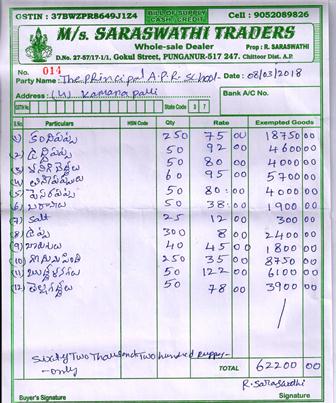 GSTIN : 37BWZPR8649J1Z4 BILL OF SUPPLY CASH / CREDIT Cell : 9052089826
M/s. SARASWATHI TRADERS
Whole-sale Dealer Prop : R. SARASWATHI
D.No. 27-57/17-1/1, Gokul Street, PUNGANUR-517 247. Chittoor Dist. A.P.
No. 014
Party Name : The principal A.P.R. School Date : 08/03/2018
Address : (U) Kamanapalli Bank A/C No.
GSTIN No State Code 3 7
S.No Particulars HSN Code Qty Rate Exempted Goods
(1) కందిపప్పు 250 75 00 18750 00
(2) 50 92 00 4600 00
(3) 50 80 00 4000 00
(4) 60 95 00 5700 00
(5) 50 80 00 4000 00
(6) 50 38 00 1900 00
(7) Salt 25 12 00 300 00
(8) 300 8 00 2400 00
(9) 40 45 00 1800 00
(10) 250 35 00 8750 00
(11) 50 122 00 6100 00
(12) 50 78 00 3900 00
Sixty Two Thousand Two hundred rupees
only TOTAL 62200 00
R. Saraswathi
Buyer's Signature Signature